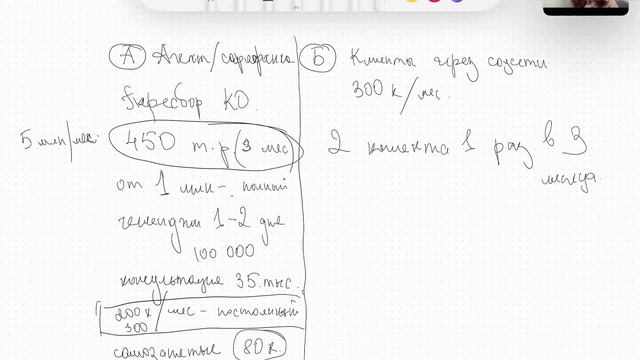 А Агент/сарафанка
Трекер КД.
5 млн/мес.
450 т.р (3 мес)
от 1 млн – полный
1-2 дня
100 000
консультация 35 тыс.
200к/мес – постоянный
300
самозанятые 80к.
Б Клиенты через соцсети
300 к/мес.
2 клиента 1 раз в 3
месяца